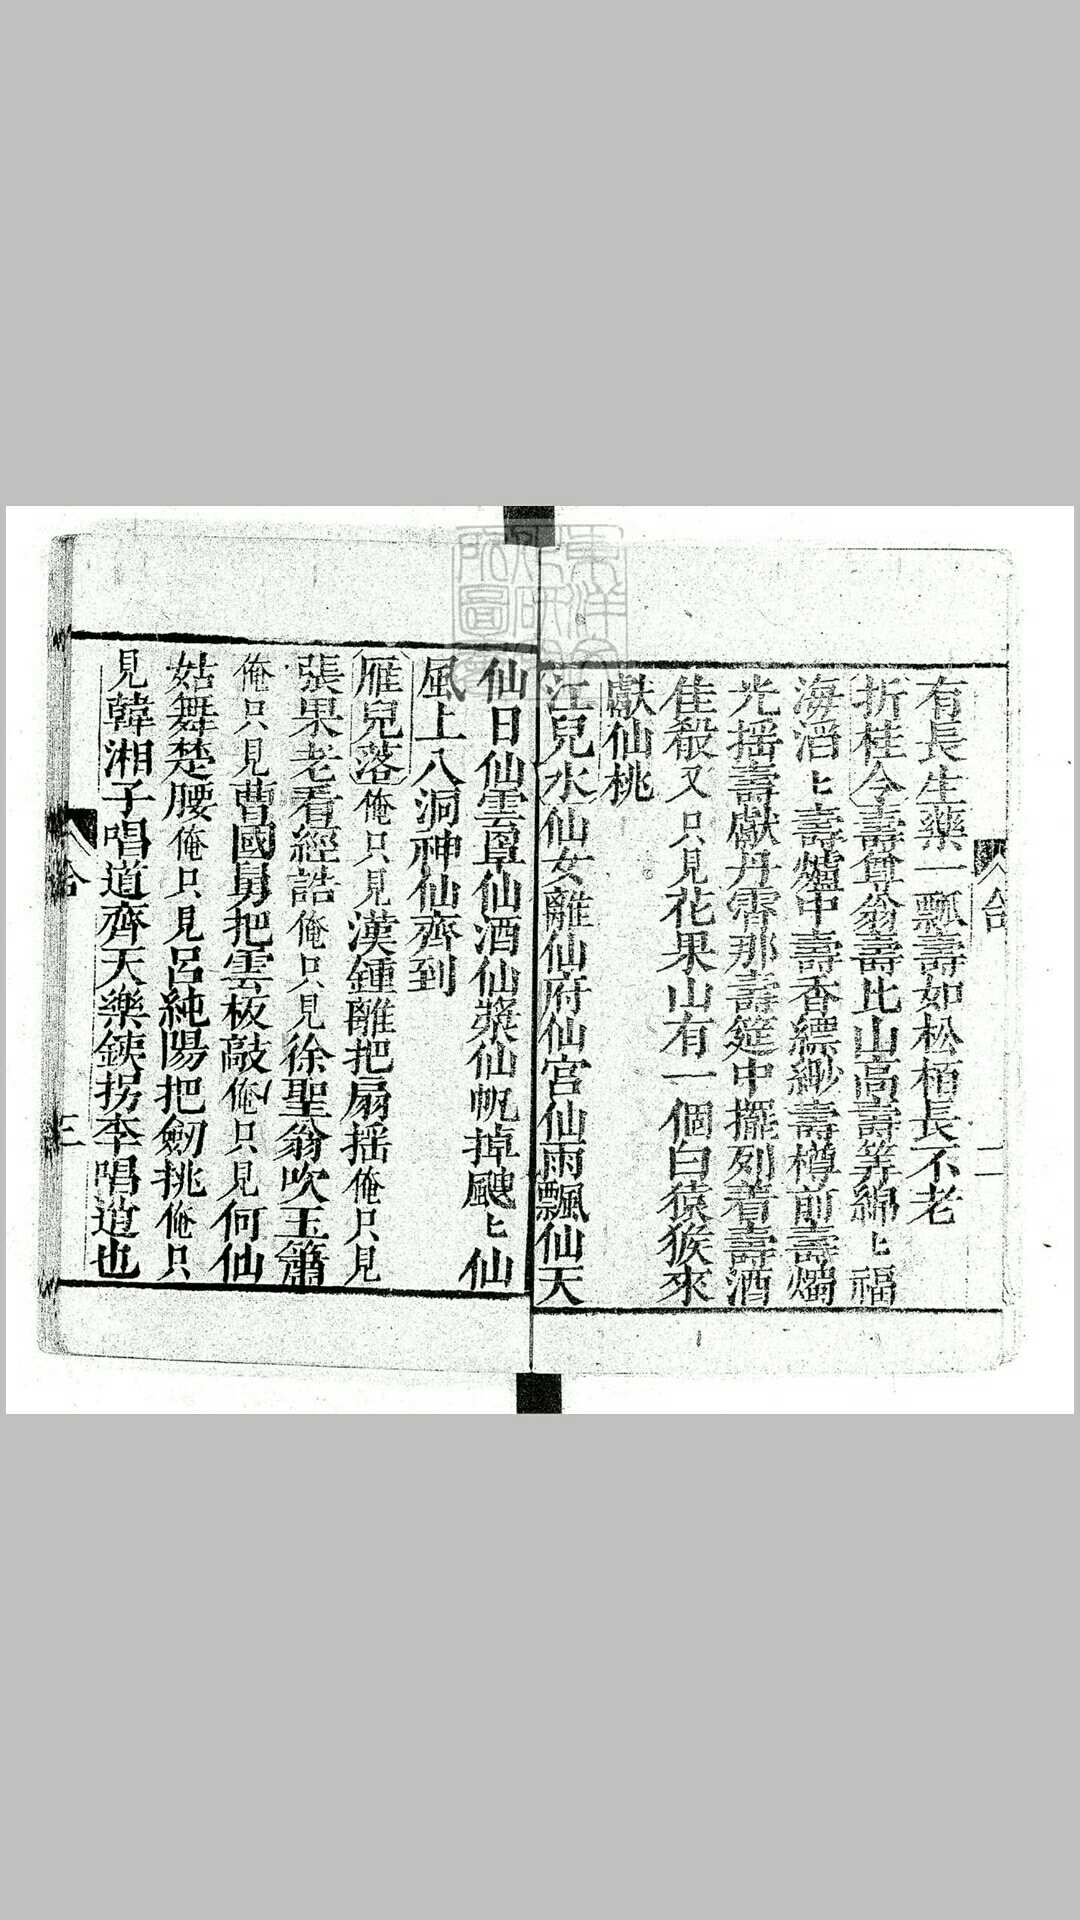 有長生藥一瓢壽如松栢長不老
折桂令壽尊翁壽比山高壽筭綿〻福
海滔〻壽爐中壽香縹緲壽樽前壽燭
光揺壽獻丹霄那壽筵中擺列着壽酒
佳殽又只見花果山有一個白猿猴來
獻仙桃
江兒水仙女離仙府仙宮仙雨飄仙天
仙日仙雲草仙酒仙漿仙帆掉颺〻仙
風上八洞神仙齊到
雁兒落俺只見漢鍾離把扇揺俺只見
張果老看經誥俺只見徐聖翁吹玉簫
俺只見曹國舅把雲板敲俺只見何仙
姑舞楚腰俺只見呂純陽把劒挑俺只
見韓湘子唱道齊天樂鉄拐李唱道也
二
三